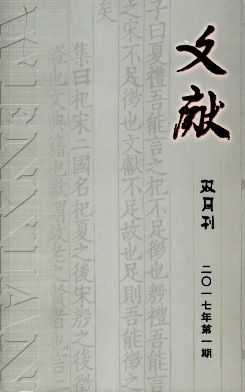 文獻
双月刊
二〇一七年第一期
子曰夏禮吾能言之杞不足徵也殷禮吾能言
之宋不足徵也文獻不足故也足則吾能
矣
集曰杞宋二國名杞夏之後宋殷之後徵
證也文典籍也獻謂故老之賢者也言二
WENXIAN